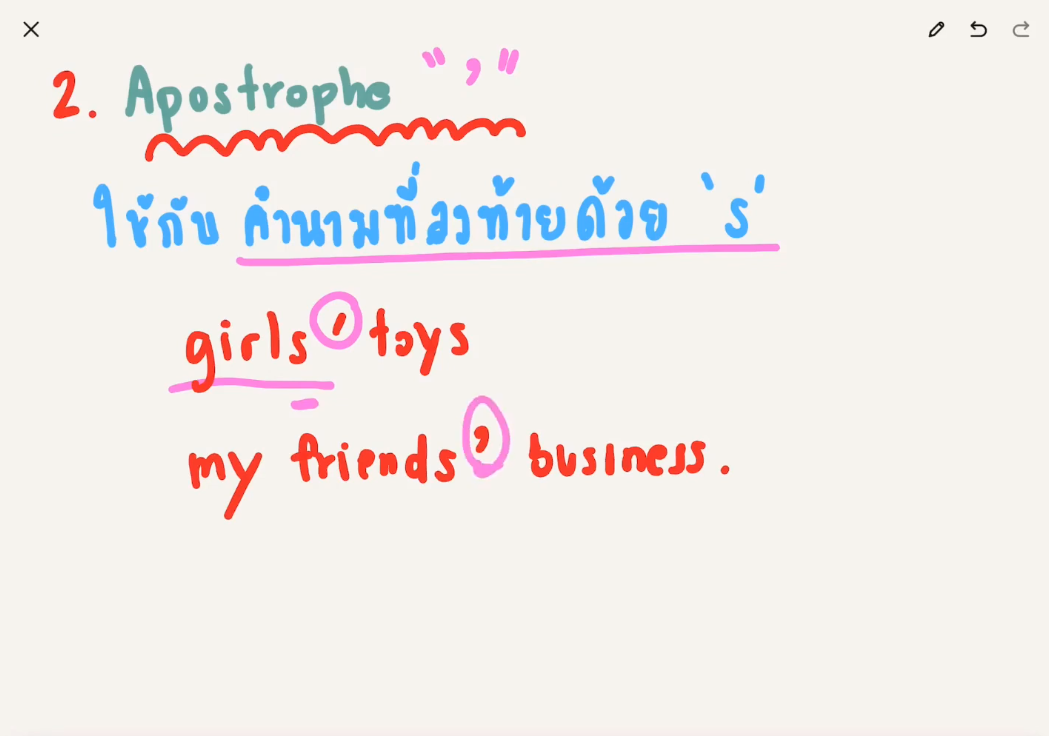 2. Apostrophe " , "
ใช้กับ คำนามที่ลงท้ายด้วย 's'
girls' toys
my friends' business.